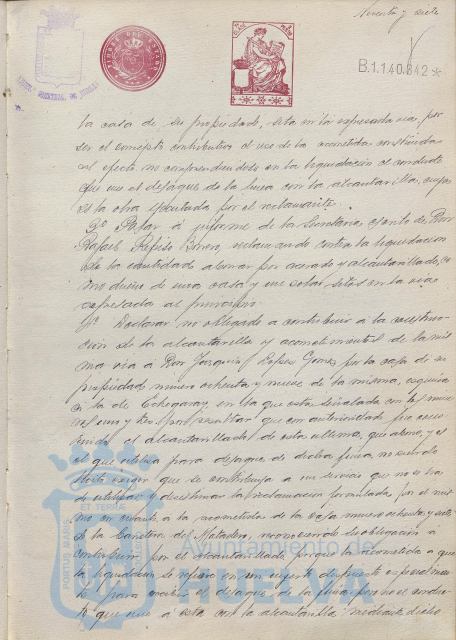 Noventa y siete
B.1.140.842*
la casa de su propiedad, sita en la expresada vía, por
ser el concepto contributivo el uso de la acometida construida
al efecto no comprendiéndose en la liquidación el conducto
que une el desagüe de la finca con la alcantarilla,
a la obra ejecutada por el reclamante.
3º Pasar á informe de la Secretaría escrito de Don
Rafael reclamando contra la liquidación
de la cantidad abonar por acerado y alcantarillado, co
mo dueño de una casa y un solar sitos en la vía
expresada al principio.
4º Declarar no obligado a contribuir a la construc
ción de la alcantarilla y acometimientos de la mis
ma vía a Don Joaquín López Gómez por la casa de su
propiedad número ochenta y nueve de la misma, esquina
a la de Echegaray, en la que está señalada con el
y tres, por resultar que con anterioridad fué cons
truido el alcantarillado de esta última, que abonó, y es
el que utiliza para desagüe de dicha finca, no siendo
justo exigir que se contribuya a un servicio que no se ha
de utilizar y desestimar la reclamación formulada por el mis
mo en cuanto a la acometida de la casa número ochenta y
de la Carretera de Matadero, reconociendo su obligación a
contribuir por el alcantarillado porque la acometida a que
la liquidación se refiere es un injerto dispuesto especialmen
te para recibir el desagüe de la finca, por no el conduc
to que une a esta con la alcantarilla mediante dicho
PORTUS MARIS
ET TERRAE
Ayuntamiento de
HUELVA